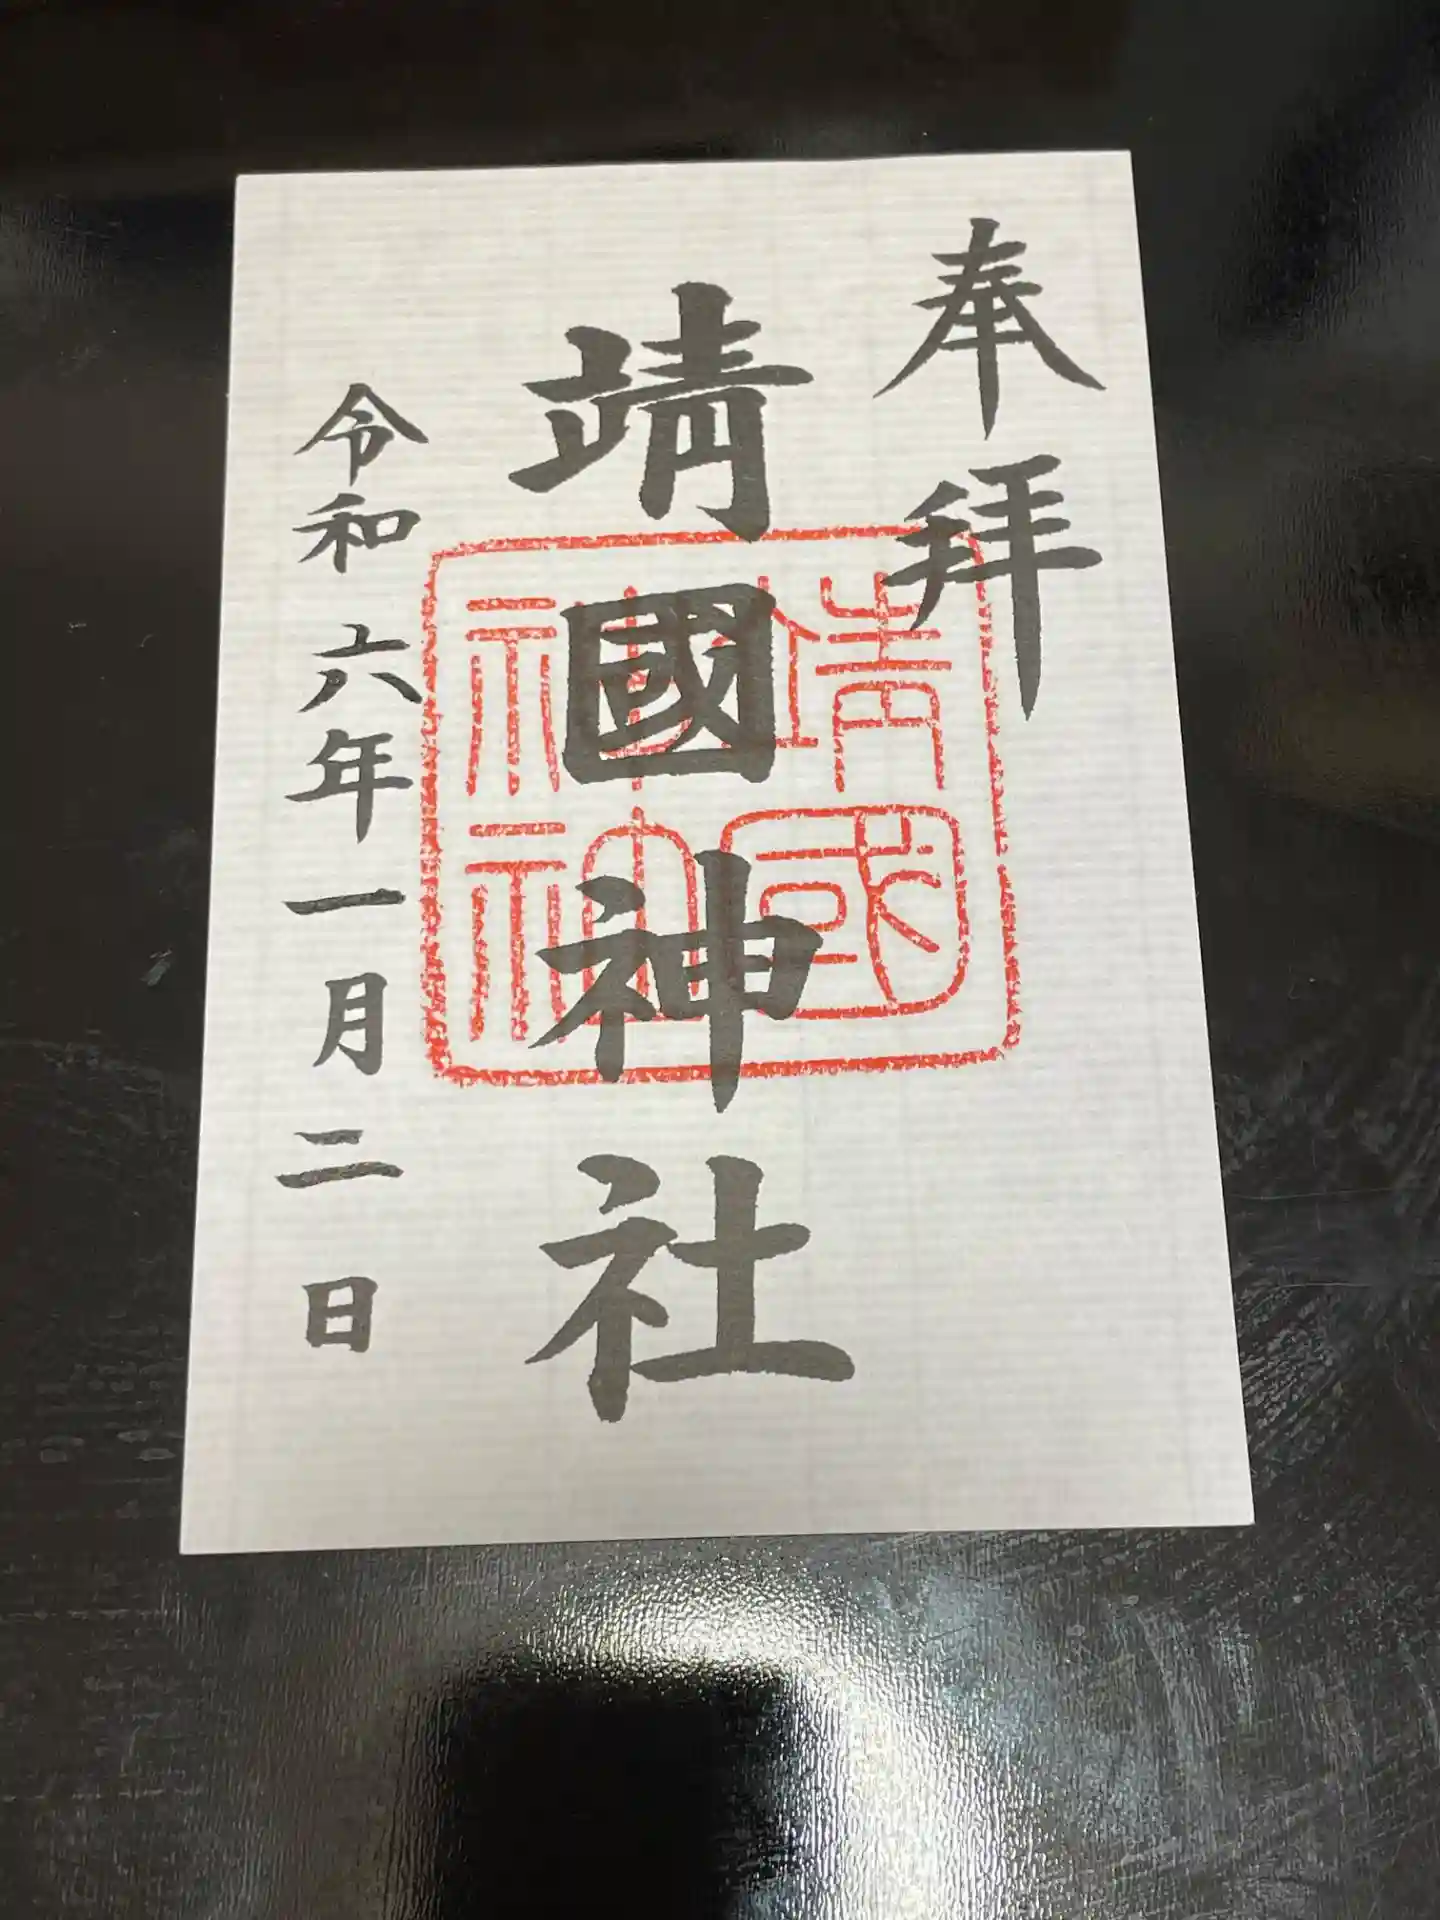 奉拝
靖國神社
靖國神社
令和六年一月二日